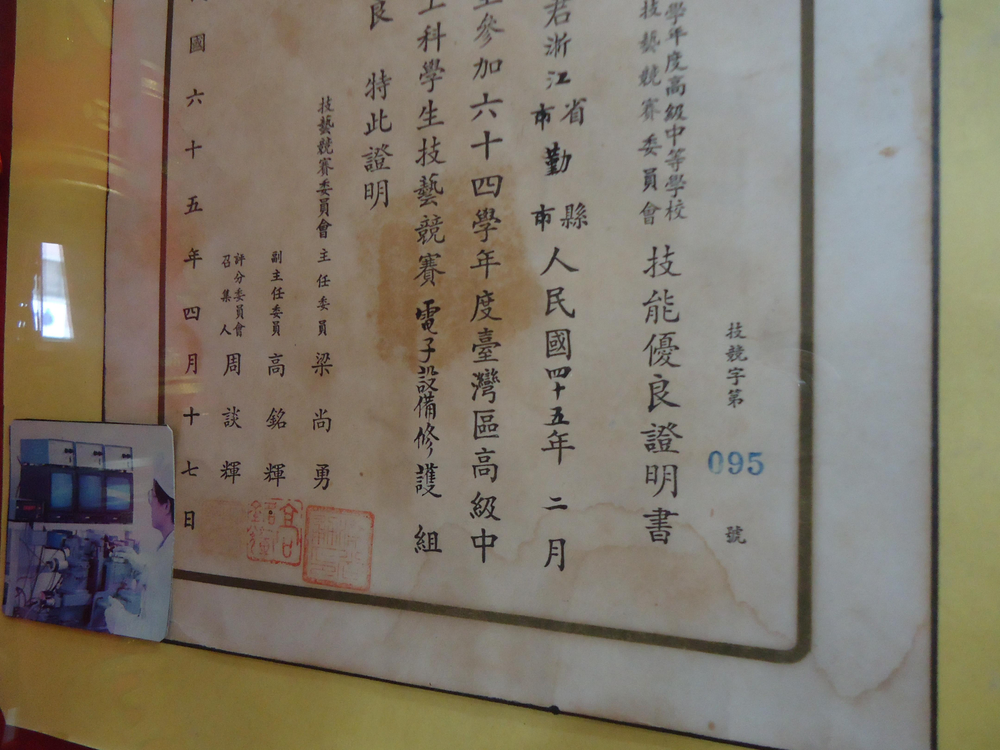 技競字第 095 號
學年度高級中等學校
技藝競賽委員會
技能優良證明書
君浙江省市勤縣市人民國四十五年二月
參加六十四學年度臺灣區高級中
工科學生技藝競賽電子設備修護組
良特此證明
技藝競賽委員會主任委員梁尚勇
副主任委員高銘輝
評分委員會召集人周談輝
國六十五年四月十七日